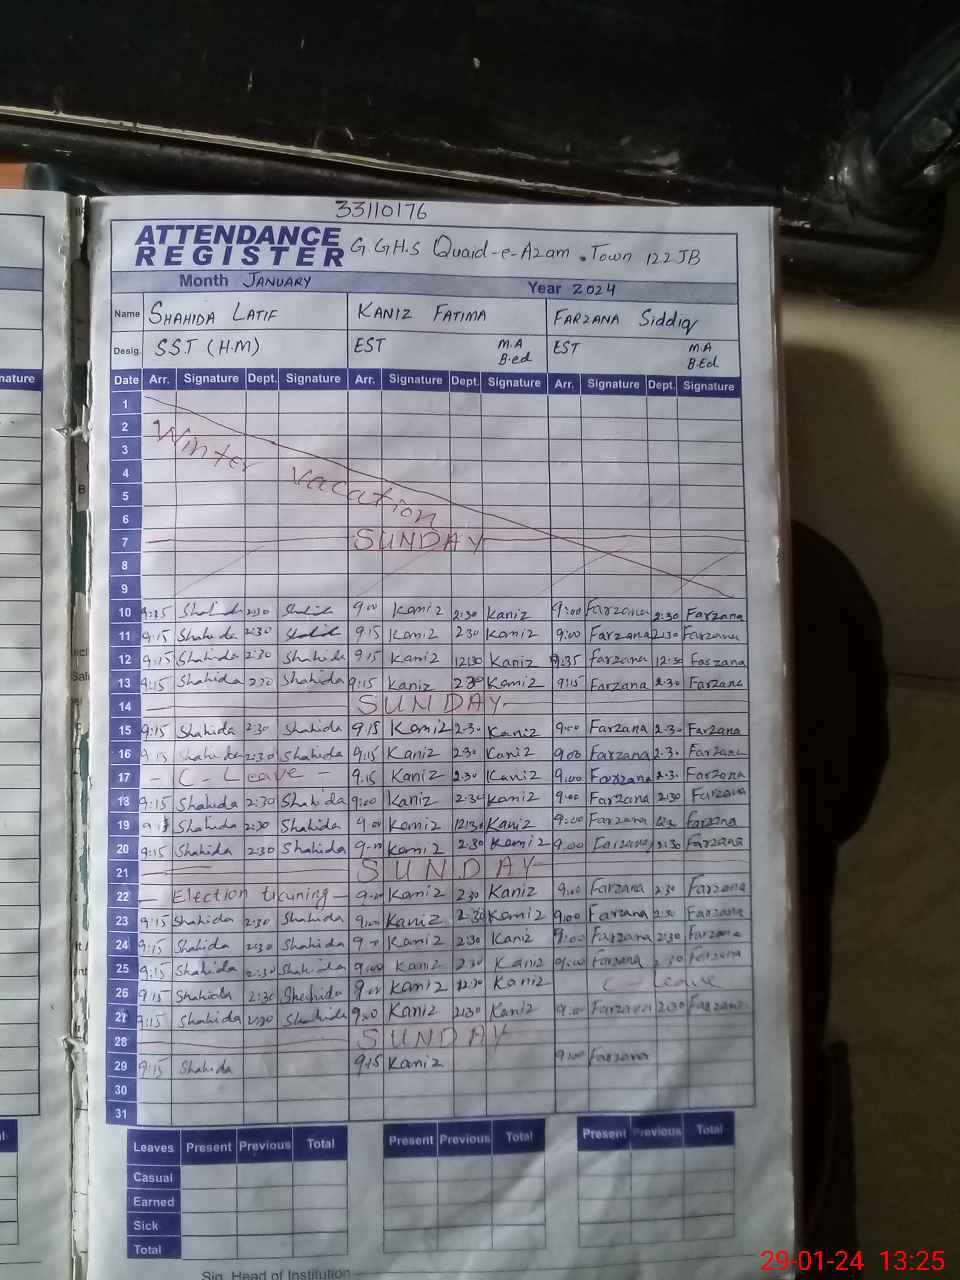 33110176
ATTENDANCE REGISTER G GH.S Quaid-e-Azam. Town 122JB
Month JANUARY Year 2024
Name SHAHIDA LATIF KANIZ FATIMA FARZANA Siddiq
Desig. S.S.T (H.M) EST M.A B.ed EST M.A B.Ed
Date Arr. Signature Dept. Signature Arr. Signature Dept. Signature Arr. Signature Dept. Signature
1
2
3
4
5
6
Winter vacation
7 SUNDAY
8
9
10 2:30 9:00 Kaniz 2:30 Kaniz 9:00 Farzana 2:30 Farzana
11 9:15 2:30 9:15 Kaniz 2:30 Kaniz 9:00 Farzana 2:30 Farzana
12 9:15 Shahida 2:30 Shahida 9:15 Kaniz 12:30 Kaniz Farzana 12:30 Farzana
13 9:15 Shahida 2:30 Shahida 9:15 Kaniz 2:30 Kaniz 9:15 Farzana 2:30 Farzana
14 SUNDAY
15 9:15 Shahida 2:30 Shahida 9:15 Kaniz 2:30 Kaniz 9:00 Farzana 2:30 Farzana
16 9:15 Shahida 2:30 Shahida 9:15 Kaniz 2:30 Kaniz 9:00 Farzana 2:30 Farzana
17 - C - Leave - 9:15 Kaniz 2:30 Kaniz 9:00 Farzana 2:30 Farzana
18 9:15 Shahida 2:30 Shahida 9:00 Kaniz 2:30 Kaniz 9:00 Farzana 2:30 Farzana
19 9:15 Shahida 2:30 Shahida Kaniz 12:30 Kaniz 9:00 Farzana Farzana
20 9:15 Shahida 2:30 Shahida Kaniz 2:30 Kaniz 9:00 Farzana 2:30 Farzana
21 SUNDAY
22 - Election - 9:00 Kaniz 2:30 Kaniz 9:00 Farzana 2:30 Farzana
23 9:15 Shahida 2:30 Shahida 9:00 Kaniz 2:30 Kaniz 9:00 Farzana 2:30 Farzana
24 9:15 Shahida 2:30 Shahida Kaniz 2:30 Kaniz 9:00 Farzana 2:30 Farzana
25 9:15 Shahida 2:30 Shahida 9:00 Kaniz 2:30 Kaniz 9:00 Farzana 2:30 Farzana
26 9:15 Shahida 2:30 Shahida 9:00 Kaniz 12:30 Kaniz C - Leave
27 9:15 Shahida 2:30 Shahida 9:00 Kaniz 2:30 Kaniz 9:00 Farzana 2:30 Farzana
28 SUNDAY
29 9:15 Shahida 9:15 Kaniz 9:00 Farzana
30
31
Leaves Present Previous Total Present Previous Total Present Previous Total
Casual
Earned
Sick
Total
Sig. Head of Institution
29-01-24 13:25